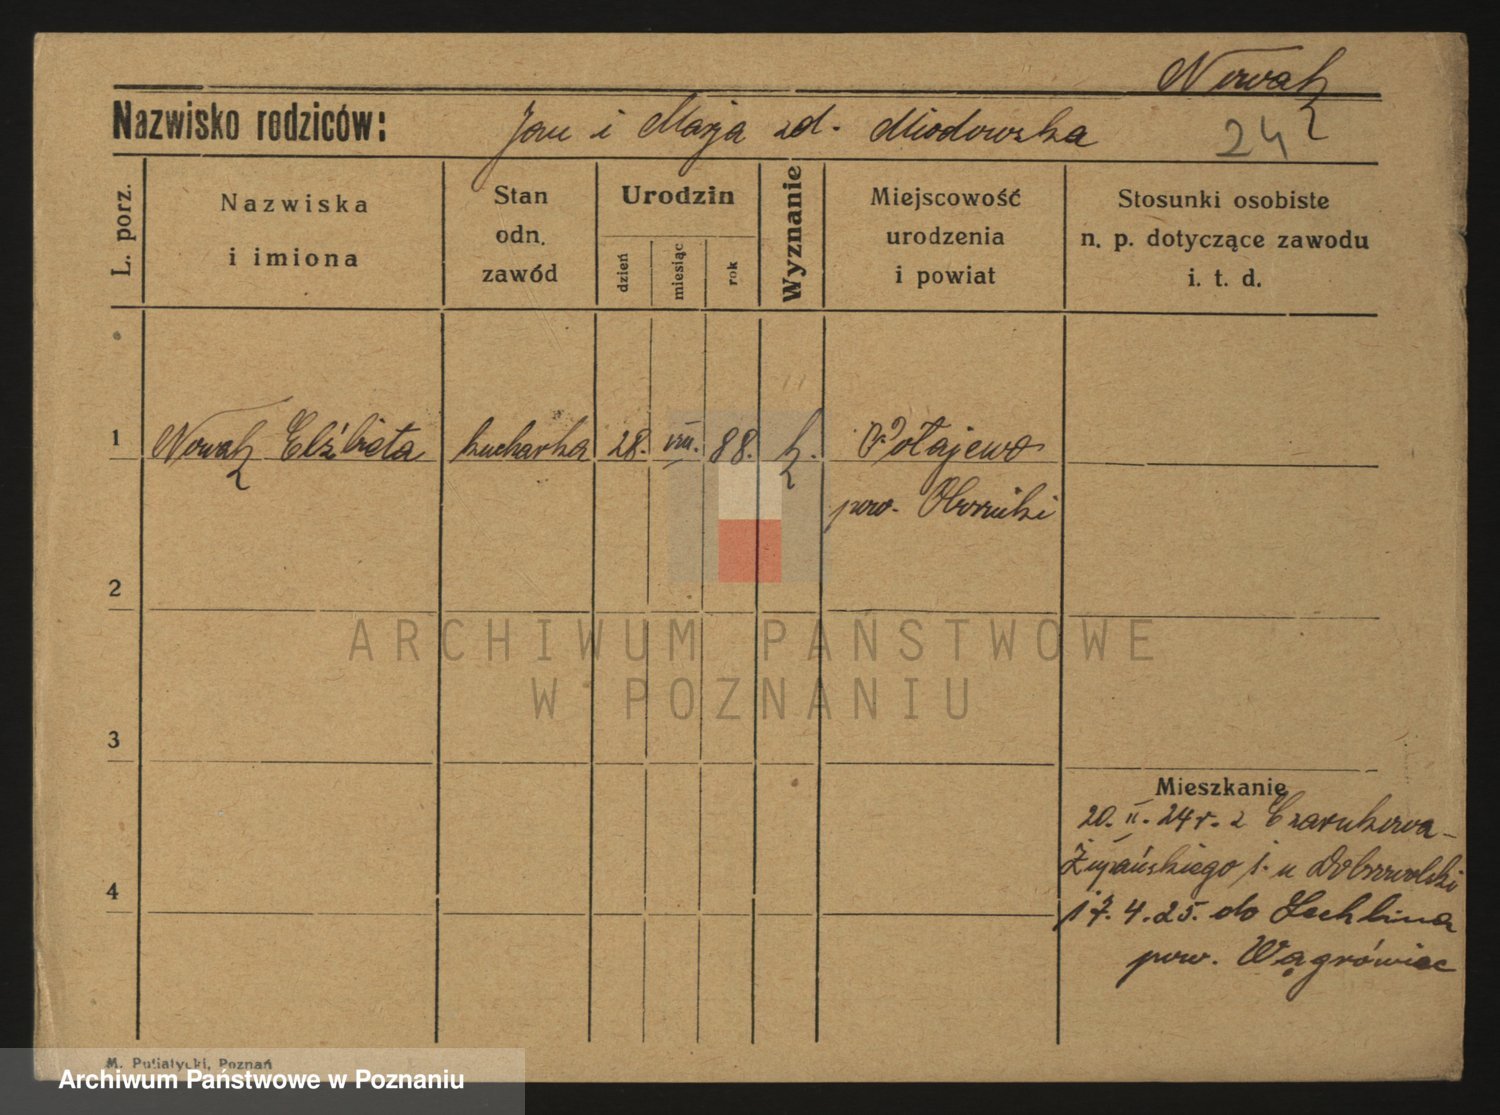 Nowak
Nazwisko rodziców: Jan i Marja zd. Miodowska
24
L. porz.
Nazwiska
i imiona
Stan
odn.
zawód
Urodzin
dzień
miesiąc
rok
Wyznanie
Miejscowość
urodzenia
i powiat
Stosunki osobiste
n. p. dotyczące zawodu
i. t. d.
1 Nowak Elżbieta kucharka 28. VIII. 88. k. Połajewo
pow. Oborniki
2
ARCHIWUM PAŃSTWOWE
W POZNANIU
3
Mieszkanie
20. II. 24 r. z Czarnkowa -
Żupańskiego 1. u Dobrowolski
4
17. 4. 25. do Lechlina
pow. Wągrówiec
M. Putiatycki, Poznań
Archiwum Państwowe w Poznaniu